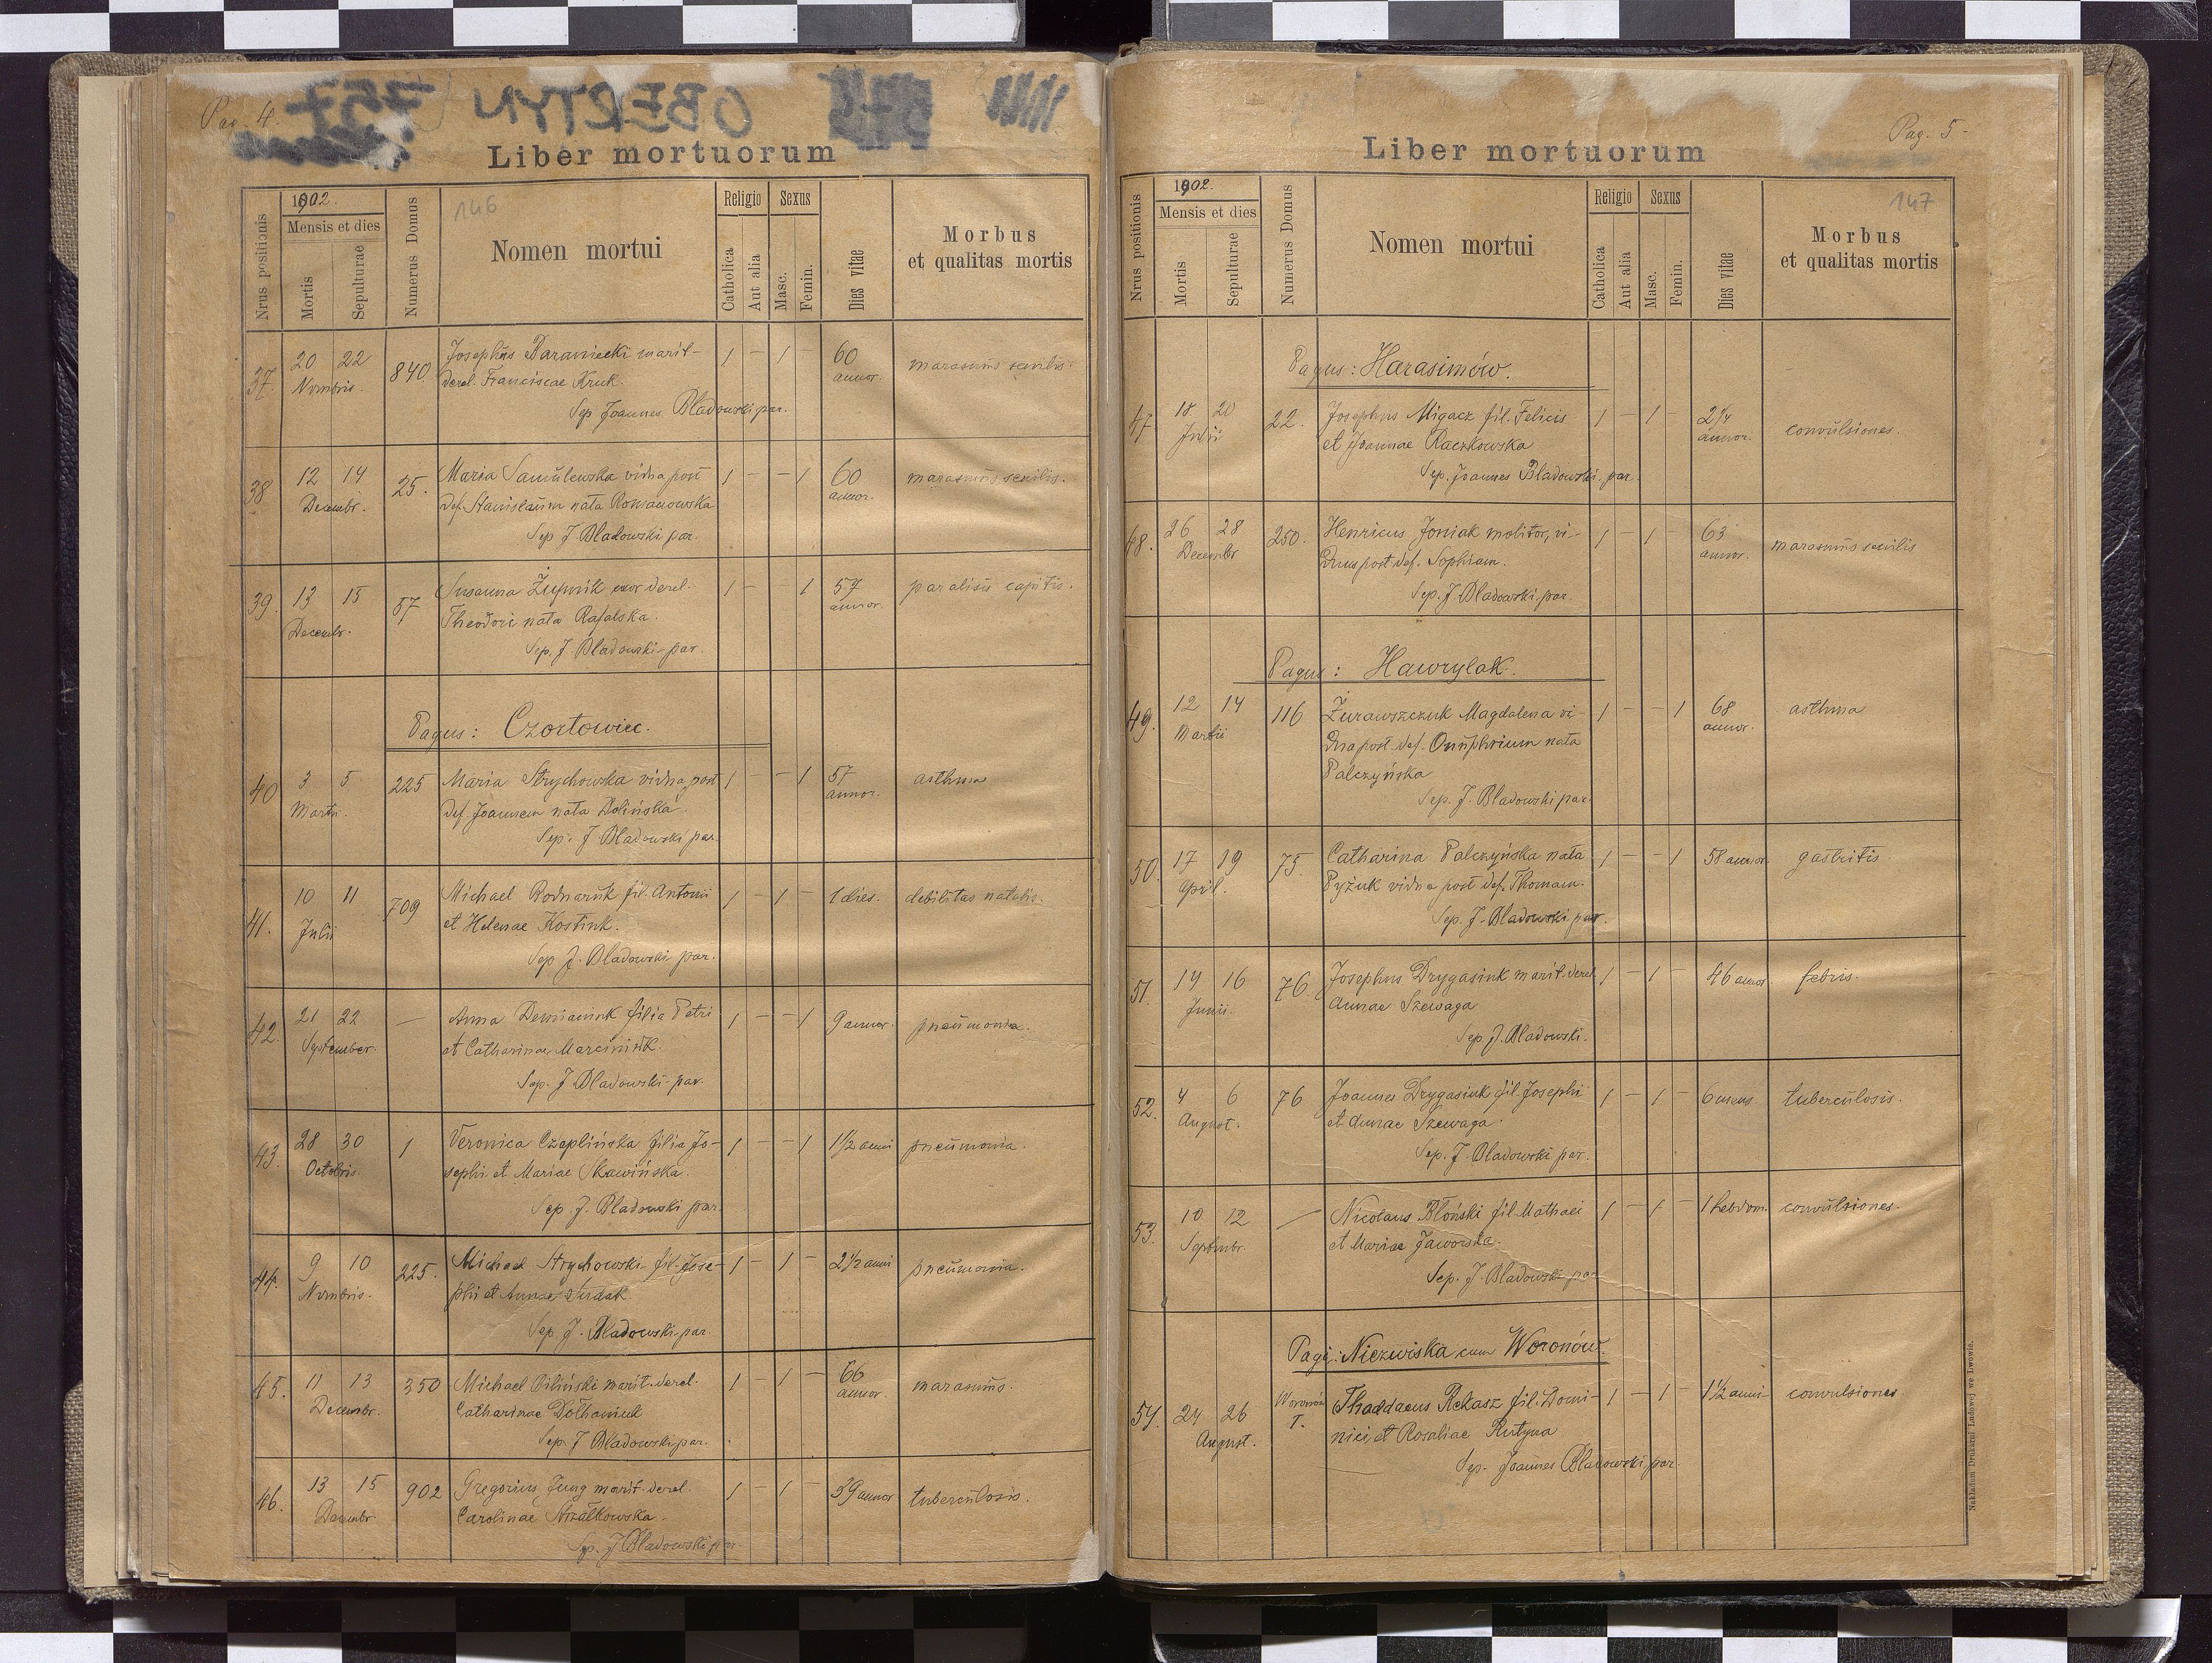 Pag. 4.
OBERTYN 757
Liber mortuorum
1902.
Nrus positionis
Mensis et dies
Mortis
Sepulturae
Numerus Domus
146
Nomen mortui
Religio
Catholica
Aut alia
Sexus
Masc.
Femin.
Dies vitae
Morbus
et qualitas mortis
37. 20 22 Novmbris. 840 Josephus Baraniecki marit- 1 - 1 - 60 annor. marasmus senilis.
derel. Franciscae Kruk.
Sep Joannes Bladowski par.
38 12 14 Decembr. 25. Maria Samulewska vidua post 1 - - 1 60 annor. marasmus senilis.
def. Stanislaum nata Romanowska
Sep J Bladowski par.
39. 13 15 Decembr. 87 Susanna Żupnik uxor derel. 1 - - 1 57 annor. paralisis capitis.
Theodori nata Rafalska.
Sep. J. Bladowski par.
Pagus: Czortowiec.
40 3 5 Martii. 225 Maria Strychowska vidua post 1 - - 1 57 annor. asthma
def. Joannem nata Dolińska.
Sep. J. Bladowski par.
41. 10 11 Julii 709 Michael Bodnaruk fil. Antonii 1 - 1 - 1 dies. debilitas natalis.
et Helenae Kostiuk.
Sep J. Bladowski par.
42. 21 22 September. — Anna Demianiuk filia Petri 1 - - 1 9 annor. pneumonia.
et Catharinae Marciniuk.
Sep. J Bladowski par.
43. 28 30 Octobris. 1 Veronica Czaplińska filia Jo- 1 - - 1 1 1/2 anni pneumonia.
sephi et Mariae Skawińska.
Sep. J. Bladowski par.
44. 9 10 Novmbris. 225. Michael Strychowski fil. Jose- 1 - 1 - 2 1/2 anni pneumonia.
phi et Annae
Sep. J. Bladowski par.
45. 11 13 Decembr. 350 Michael Biliński marit. derel. 1 - 1 - 66 annor. marasmus.
Catharinae Dołhaniuk
Sep. J Bladowski par.
46. 13 15 Decembr 902 Gregorius Jung marit. derel. 1 - 1 - 39 annor tuberculosis.
Carolinae Strzałkowska.
Sep. J Bladowski par.
Pag. 5-
Liber mortuorum
1902.
Nrus positionis
Mensis et dies
Mortis
Sepulturae
Numerus Domus
Nomen mortui
Religio
Catholica
Aut alia
Sexus
Masc.
Femin.
Dies vitae
147
Morbus
et qualitas mortis
Pagus: Harasimów.
47 18 20 Julii 22. Josephus Migacz fil. Felicis 1 - 1 - 2 1/4 annor. convulsiones.
et Joannae Raczkowska
Sep. Joannes Bladowski. par.
48. 26 28 Decembr 250. Henricus Joniak molitor, vi- 1 - 1 - 63 annor. marasmus senilis
duus post def. Sophiam.
Sep. J. Bladowski par.
Pagus: Hawrylak.
49. 12 14 Martii 116 Żurawszczuk Magdalena vi- 1 - - 1 68 annor. asthma
dua post. def. Onuphrium nata
Palczyńska
Sep. J. Bladowski par.
50. 17 19 April. 75. Catharina Palczyńska nata 1 - - 1 58 annor gastritis.
Pyżuk vidua post def. Thomam.
Sep. J. Bladowski par.
51. 14 16 Junii. 76 Josephus Drygasiuk marit. derel. 1 - 1 - 46 annor febris.
Annae Szewaga
Sep J. Bladowski.
52. 4 6 August. 76 Joannes Drygasiuk fil. Josephi 1 - 1 - 6 mens. tuberculosis.
et Annae Szewaga.
Sep. J. Bladowski par.
53. 10 12 Septmbr. — Nicolaus Błoński fil. Mathaei 1 - 1 - 1 hebdom. convulsiones.
et Mariae Jaworska.
Sep. J. Bladowski par
Pagi: Niezwiska cum Woronów.
54. 24 26 August. Woronów T. Thaddaeus Rekasz fil. Domi- 1 - 1 - 1 1/2 anni convulsiones
nici, et Rosaliae Rutyna
Sep. Joannes Bladowski par.
Nakładem Drukarni Ludowej we Lwowie.